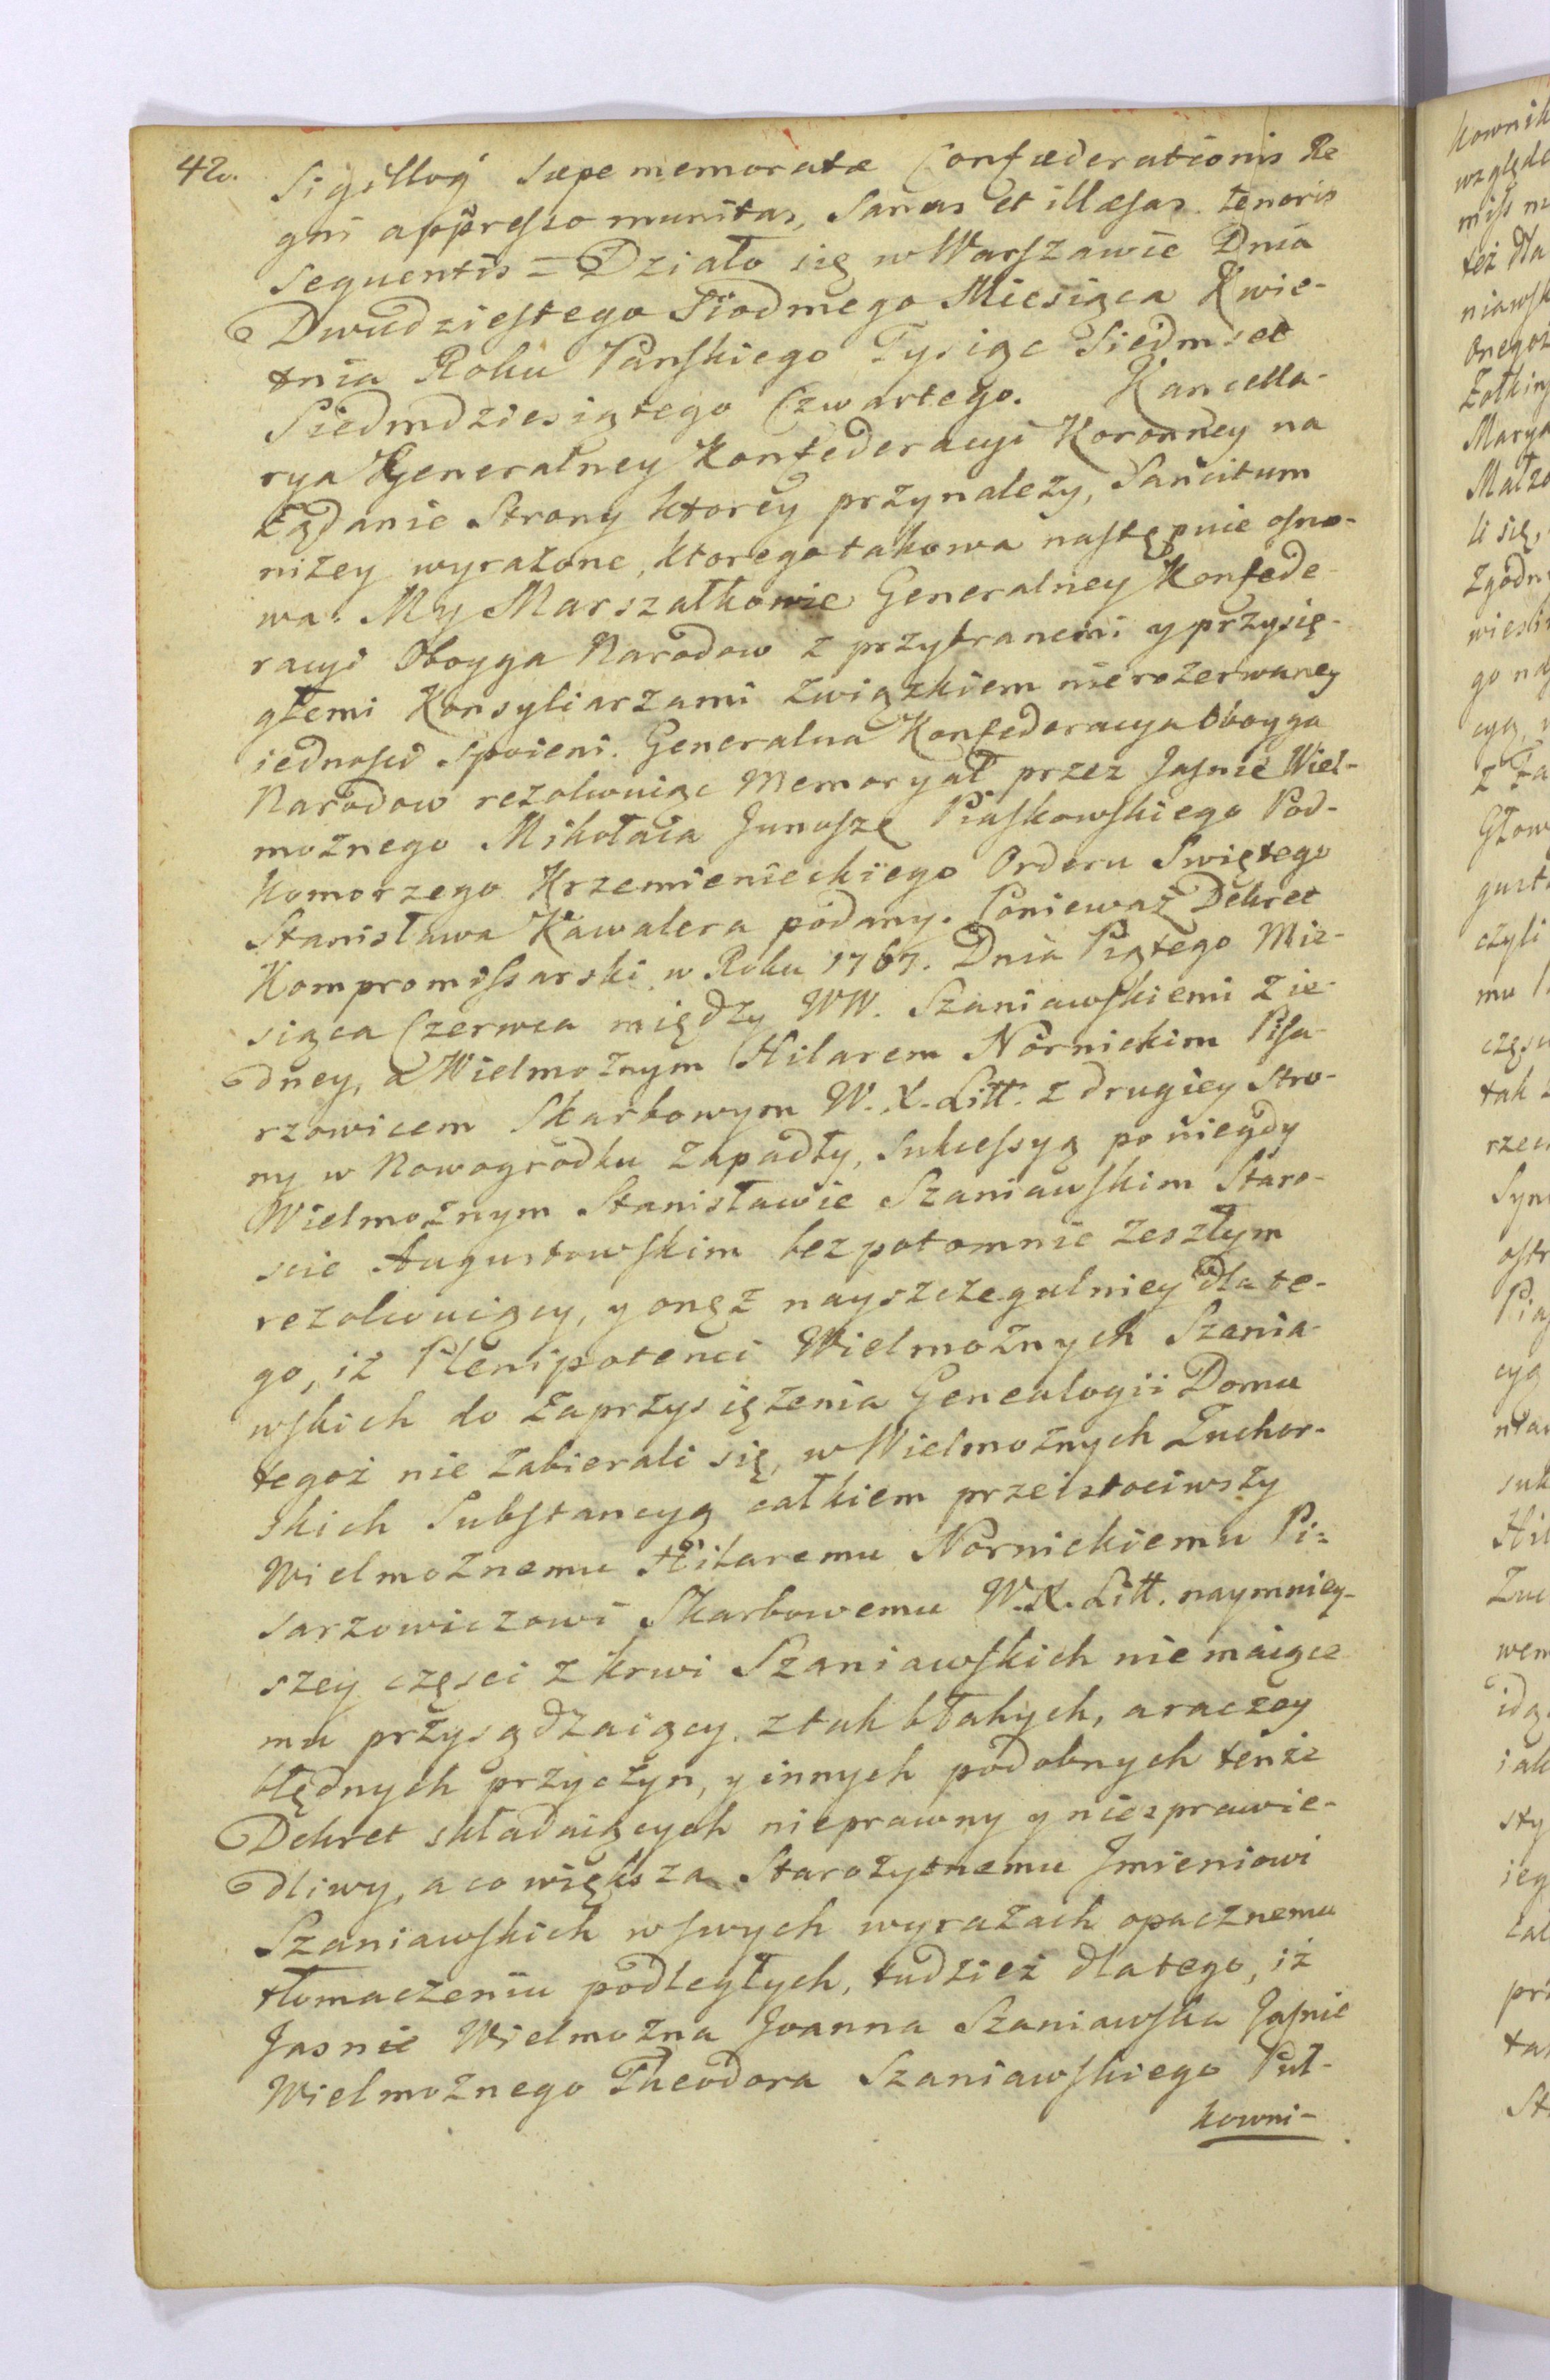 42.
Sigilloq́ Sæpe memoratæ Confæderationis Re
gni appresso munitas, Sanas et illæsas tenoris
sequentis = Działo się w Warszawie Dnia
Dwudziestego Siodmego Miesiąca Kwie-
tnia Roku Panskiego Tysiąc Siedmset
Siedmdziesiątego Czwartego. Kancella-
rya Generalney Konfederacyi Koronney na
żądanie Strony ktorey przynalezy, Sancitum
niżey wyrażone, ktorego takowa następuie osno-
wa. My Marszałkowie Generalney Konfede-
racyi Oboyga Narodow z przybranemi y przysię-
głemi Konsyliarzami Związkiem nierozerwaney
iednosci spoieni. Generalna Konfederacya Oboyga
Narodow rezolwuiąc Memoryał przez Jasnie Wiel-
możnego Mikołaia Junoszę Piaskowskiego Pod-
komorzego Krzemienieckiego Orderu Swiętego
Stanisława Kawalera podany. Poniewaz Dekret
Kompromissarski w Roku 1767. Dnia Piątego Mie-
siąca Czerwca między WW. Szaniawskiemi z ie-
dney, a Wielmożnym Hilarem Nornickim Pisa-
rzowicem Skarbowym W. X. Litt. z drugiey Stro-
ny w Nowogrodku Zapadły, Sukcessyą po niegdy
Wielmożnym Stanisławie Szaniawskim Staro-
scie Augustowskim bezpotomnie zeszłym
rezolwuiący, y onęż nayszczegulniey dla te-
go, iż Plenipotenci Wielmożnych Szania-
wskich do Zaprzysiężenia Genealogii Domu
tegoż nie zabierali się, w Wielmożnych Zuchor-
skich Substancyą całkiem przeistoczywszy
Wielmożnemu Hilaremu Nornickiemu Pi-
sarzowiczowi Skarbowemu W. X. Litt. naymniey-
szey częsci z krwi Szaniawskich nie maiące
mu przysądzaiący, z tak błahych, a raczey
błędnych przyczyn, y innych podobnych tenże
Dekret składaiących nieprawny y niesprawie-
dliwy, a co większa Starożytnemu Jmieniowi
Szaniawskich w swych wyrazach opacznemu
tłomaczeniu podległych, tudzież dlatego, iż
Jasnie Wielmożna Joanna Szaniawska Jasnie
Wielmożnego Theodora Szaniawskiego Puł-
kowni-